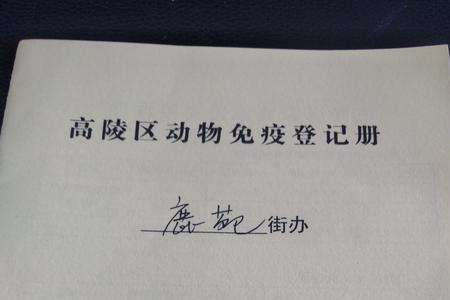 高陵区动物免疫登记册
鹿苑街办